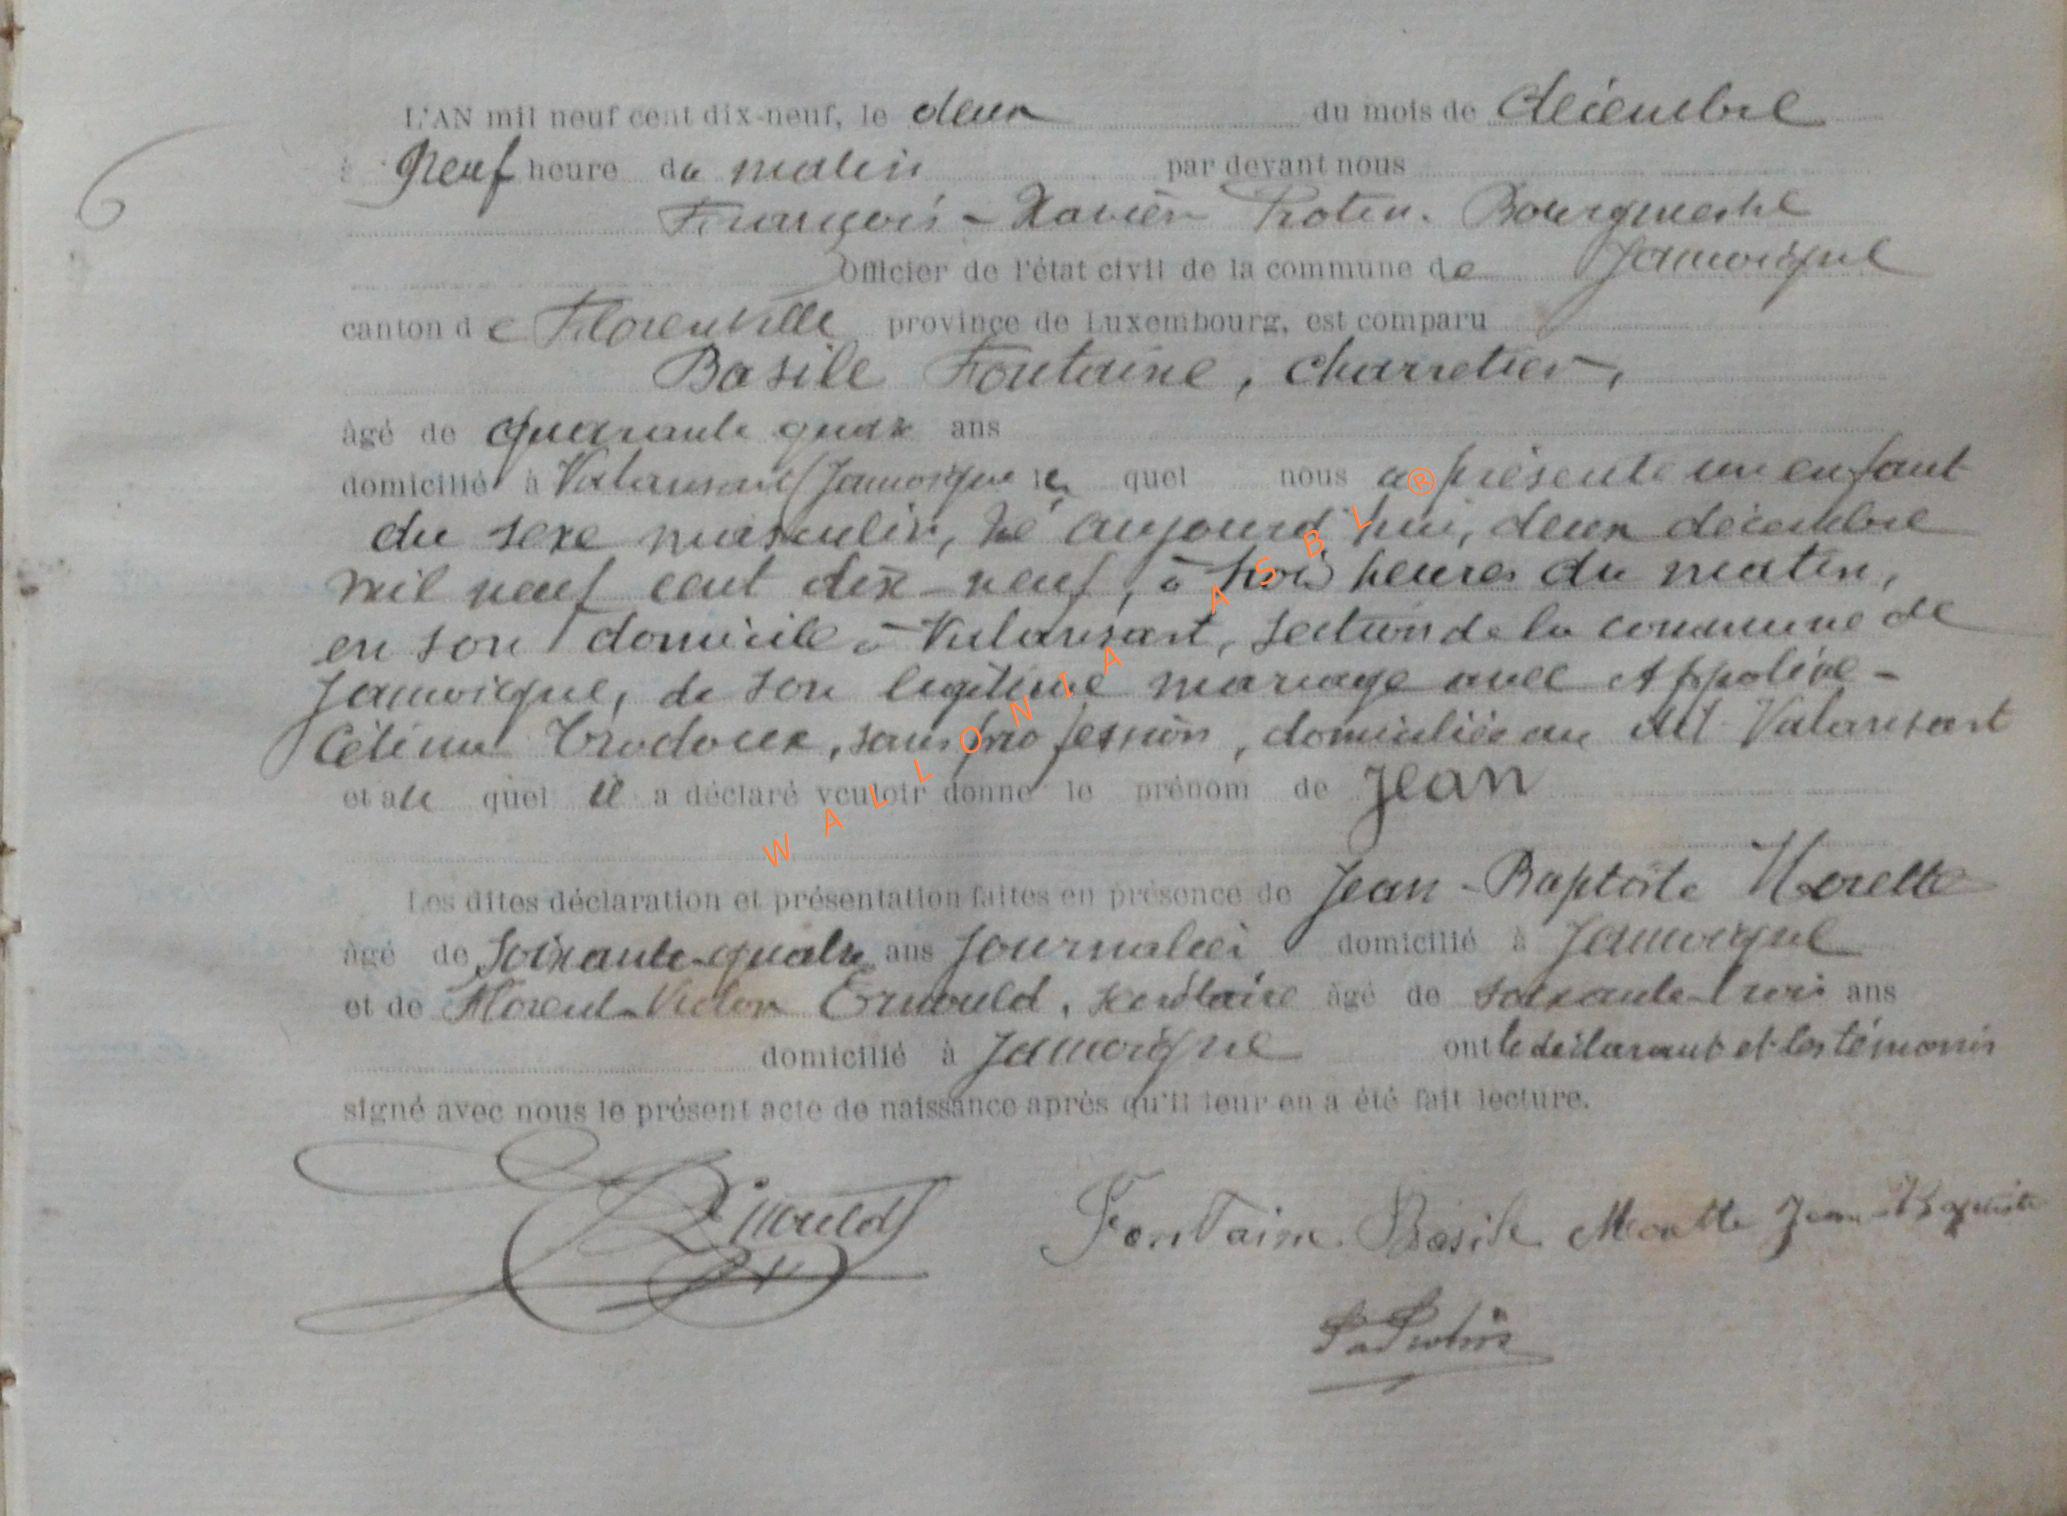 L'AN mil neuf cent dix-neuf, le deux du mois de décembre
à Neuf heure du matin par devant nous
François-Xavier Protin. Bourgmestre
Officier de l'état civil de la commune de Jamoigne
canton de Florenville province de Luxembourg, est comparu
Basile Fontaine, charretier,
âgé de quarante quatre ans
domicilié à Valansart/Jamoigne le quel nous a présenté un enfant
du sexe masculin, né aujourd'hui, deux décembre
mil neuf cent dix-neuf, à trois heures du matin,
en son domicile à Valansart, section de la commune de
Jamoigne, de son légitime mariage avec Appoline-
Célina Trodoux, sans profession, domiciliée au dit Valansart
et au quel il a déclaré vouloir donne le prénom de Jean
Les dites déclaration et présentation faites en présence de Jean-Baptiste
âgé de soixante-quatre ans journalier domicilié à Jamoigne
et de Florent-Victor Ernould, secrétaire âgé de soixante-trois ans
domicilié à Jamoigne ont le déclarant et les témoins
signé avec nous le présent acte de naissance après qu'il leur en a été fait lecture.
Ernould Fontaine Basile Jean-Baptiste
WALLONIA ASBL®